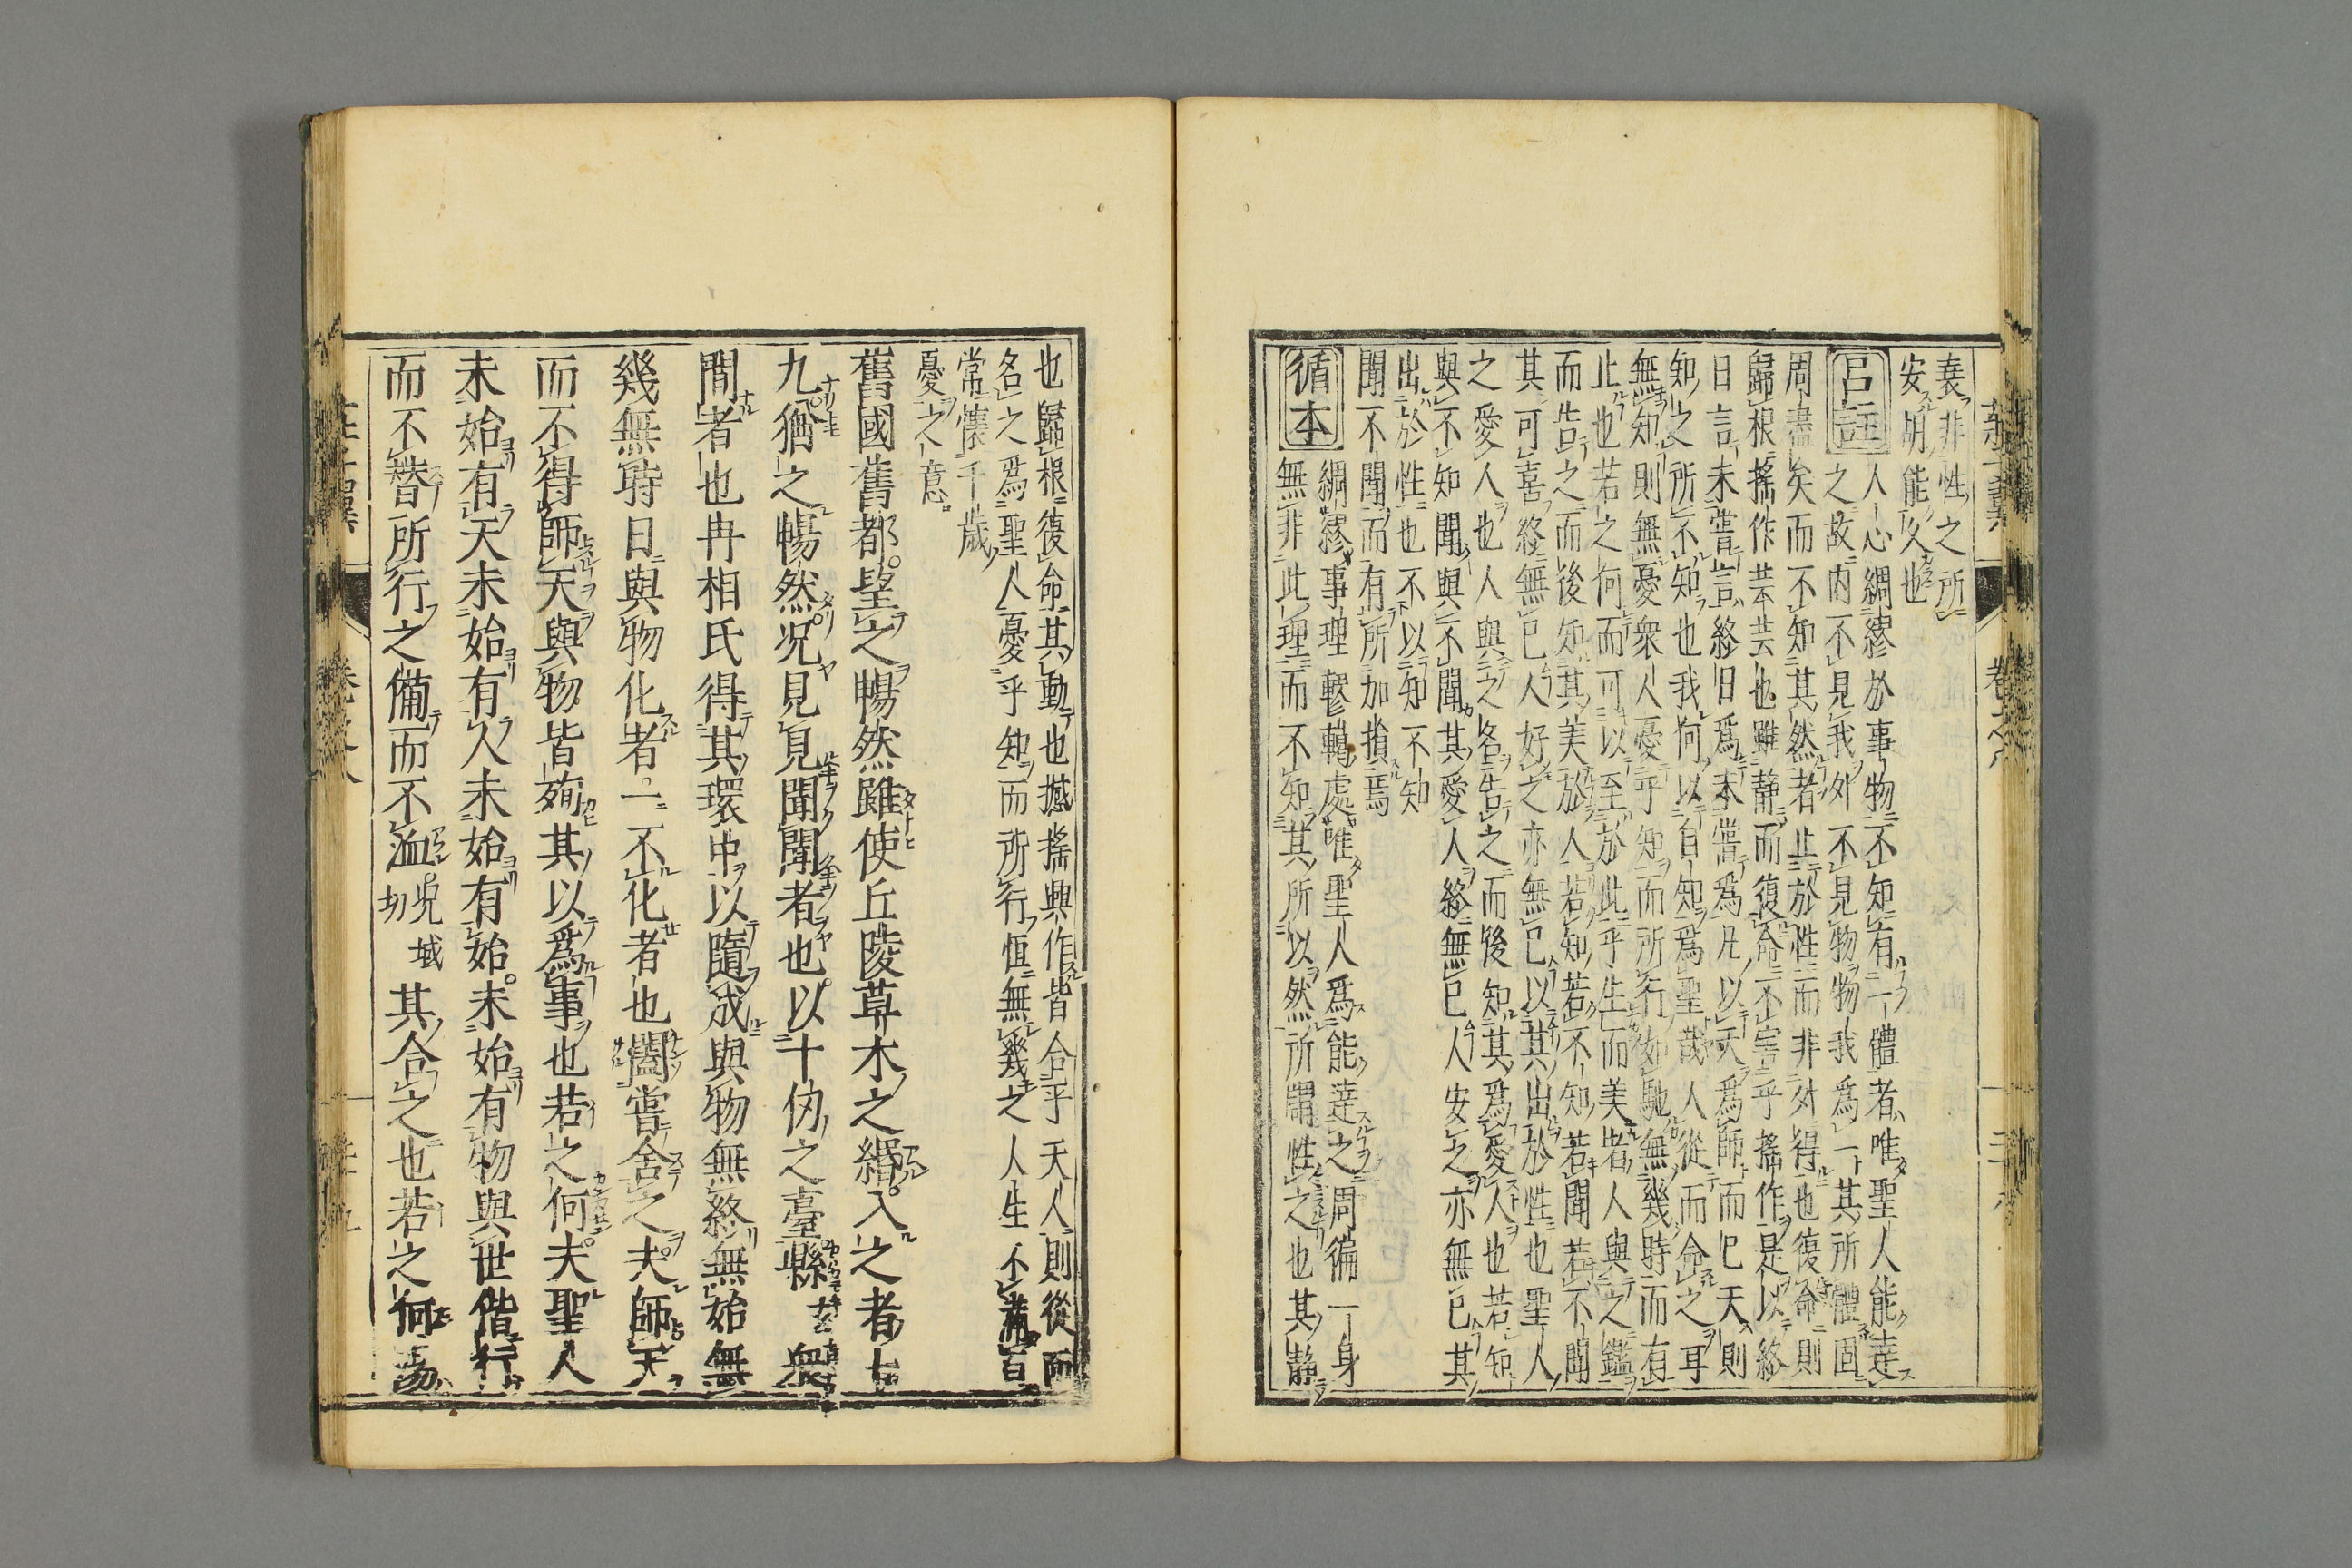 衰非性之所
安胡能久也
呂註
人心綢繆於事物不知有一體者唯聖人能達
之故內不見我外不見物物我爲一其所體固
周盡矣而不知其然者止於性而非外得也復命則
歸根搖作芸芸也雖靜而復命不害乎搖作是以終
日言未嘗言終日爲未嘗爲凡以天爲師而已天則
知之所不知也我何以自知爲聖哉人從而命之耳
無知則無憂衆人憂乎知而所行如馳無幾時而有
止也若之何而可以至於此乎生而美者人與之鑑
而告之而後知其美於人若知若不知若聞若不聞
其可喜終無已人好之亦無已以其出於性也聖人
之愛人也人與之名告之而後知其爲愛人也若知
與不知聞與不聞其愛人終無已人安之亦無已其
出於性也不以知不知
聞不聞而有所加損焉
循本
綢繆事理轇轕處唯聖人爲能達之周徧一身
無非此理而不知其所以然所謂性之也其靜
也歸根復命其動也撼搖興作皆合乎天人則從而
名之爲聖人憂乎知而所行恒無幾之人生不滿百
常懷千歲
憂之意
舊國舊都望之暢然雖使丘陵草木之緡入之者十
九猶之暢然况見見聞聞者也以十仞之臺縣衆
間者也冉相氏得其環中以隨成與物無終無始無
幾無時日與物化者一不化者也闔嘗舍之夫師天
而不得師天與物皆殉其以爲事也若之何夫聖人
未始有天未始有人未始有始未始有物與世偕行
而不替所行之備而不洫況
域
切
其合之也若之何湯